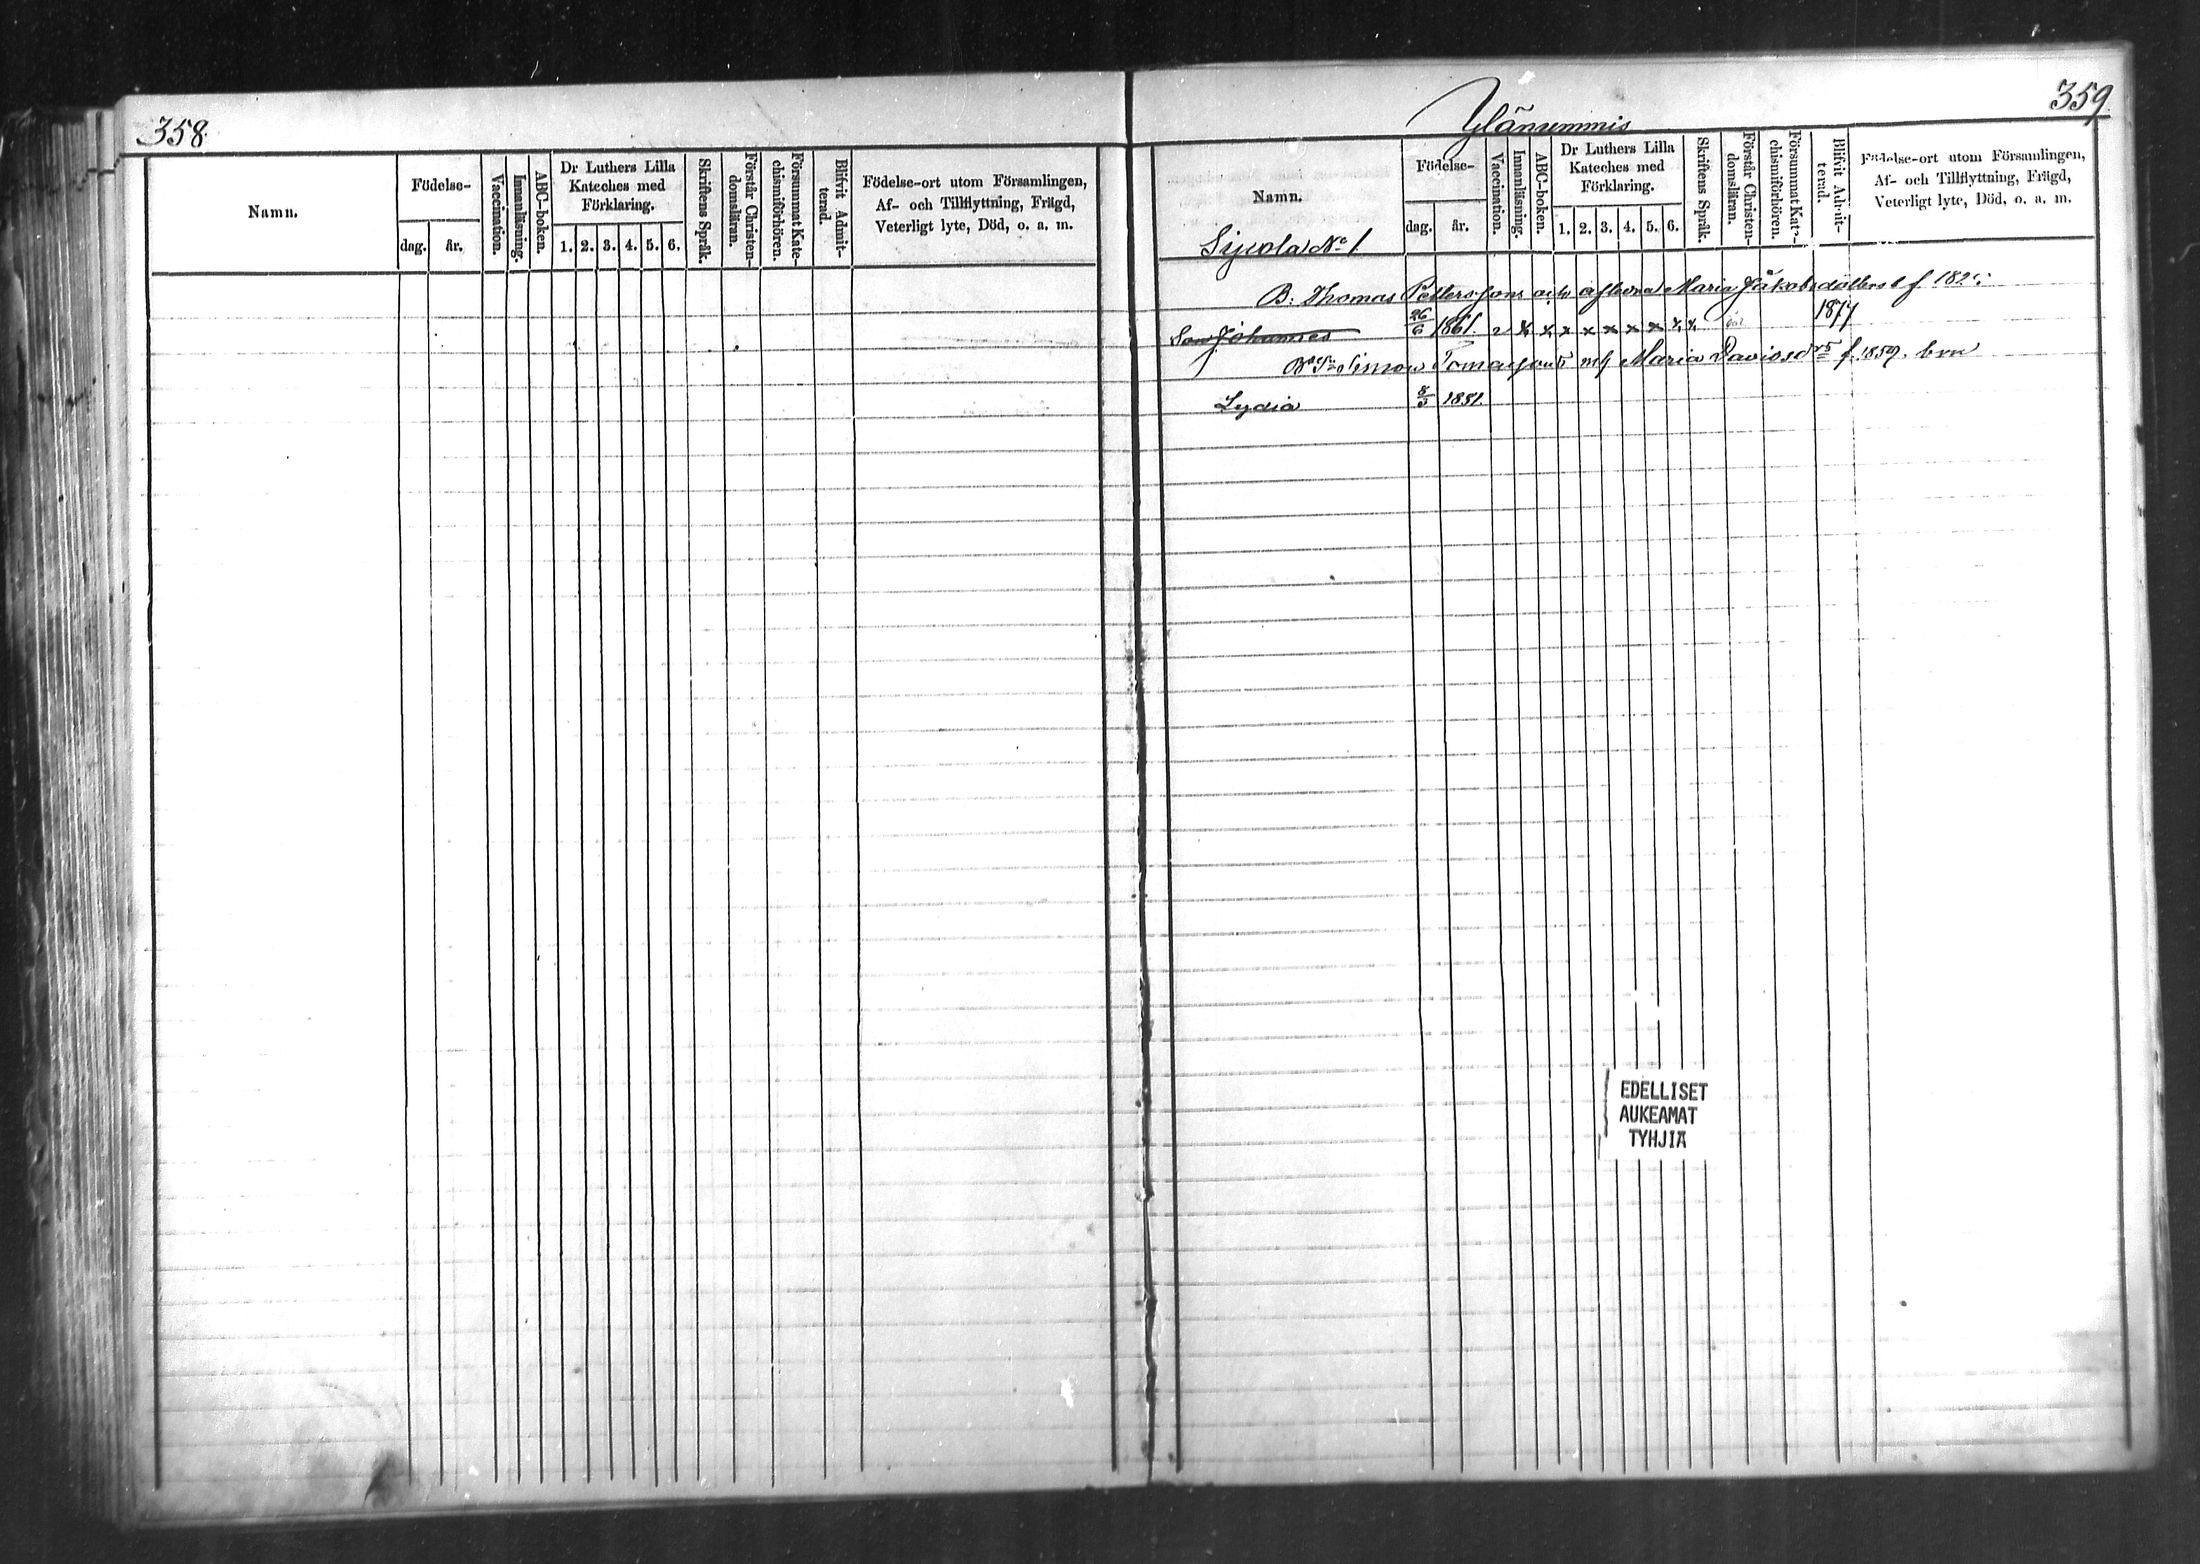 358
Namn.
Födelse-
dag. år.
Vaccination.
Innanläsning.
ABC-boken.
Dr Luthers Lilla
Kateches med
Förklaring.
1. 2. 3. 4. 5. 6.
Skriftens Språk.
Förstår Christen-
domsläran.
Försummat Kate-
chismiförhören.
Blifvit Admit-
terad.
Födelse-ort utom Församlingen,
Af- och Tillflyttning, Frägd,
Veterligt lyte, Död, o. a. m.
359
Namn.
Födelse-
dag. år.
Vaccination.
Innanläsning.
ABC-boken.
Dr Luthers Lilla
Kateches med
Förklaring.
1. 2. 3. 4. 5. 6.
Skriftens Språk.
Förstår Christen-
domsläran.
Försummat Kate-
chismiförhören.
Blifvit Admit-
terad.
Födelse-ort utom Församlingen,
Af- och Tillflyttning, Frägd,
Veterligt lyte, Död, o. a. m.
No 1
B. Thomas Pettersons och aflidna Maria f 182
Son Johannes 26/6 1861. 1877
Simon Tomasson Maria f. 1859.
Lydia 8/3 1881.
EDELLISET
AUKEAMAT
TYHJIA